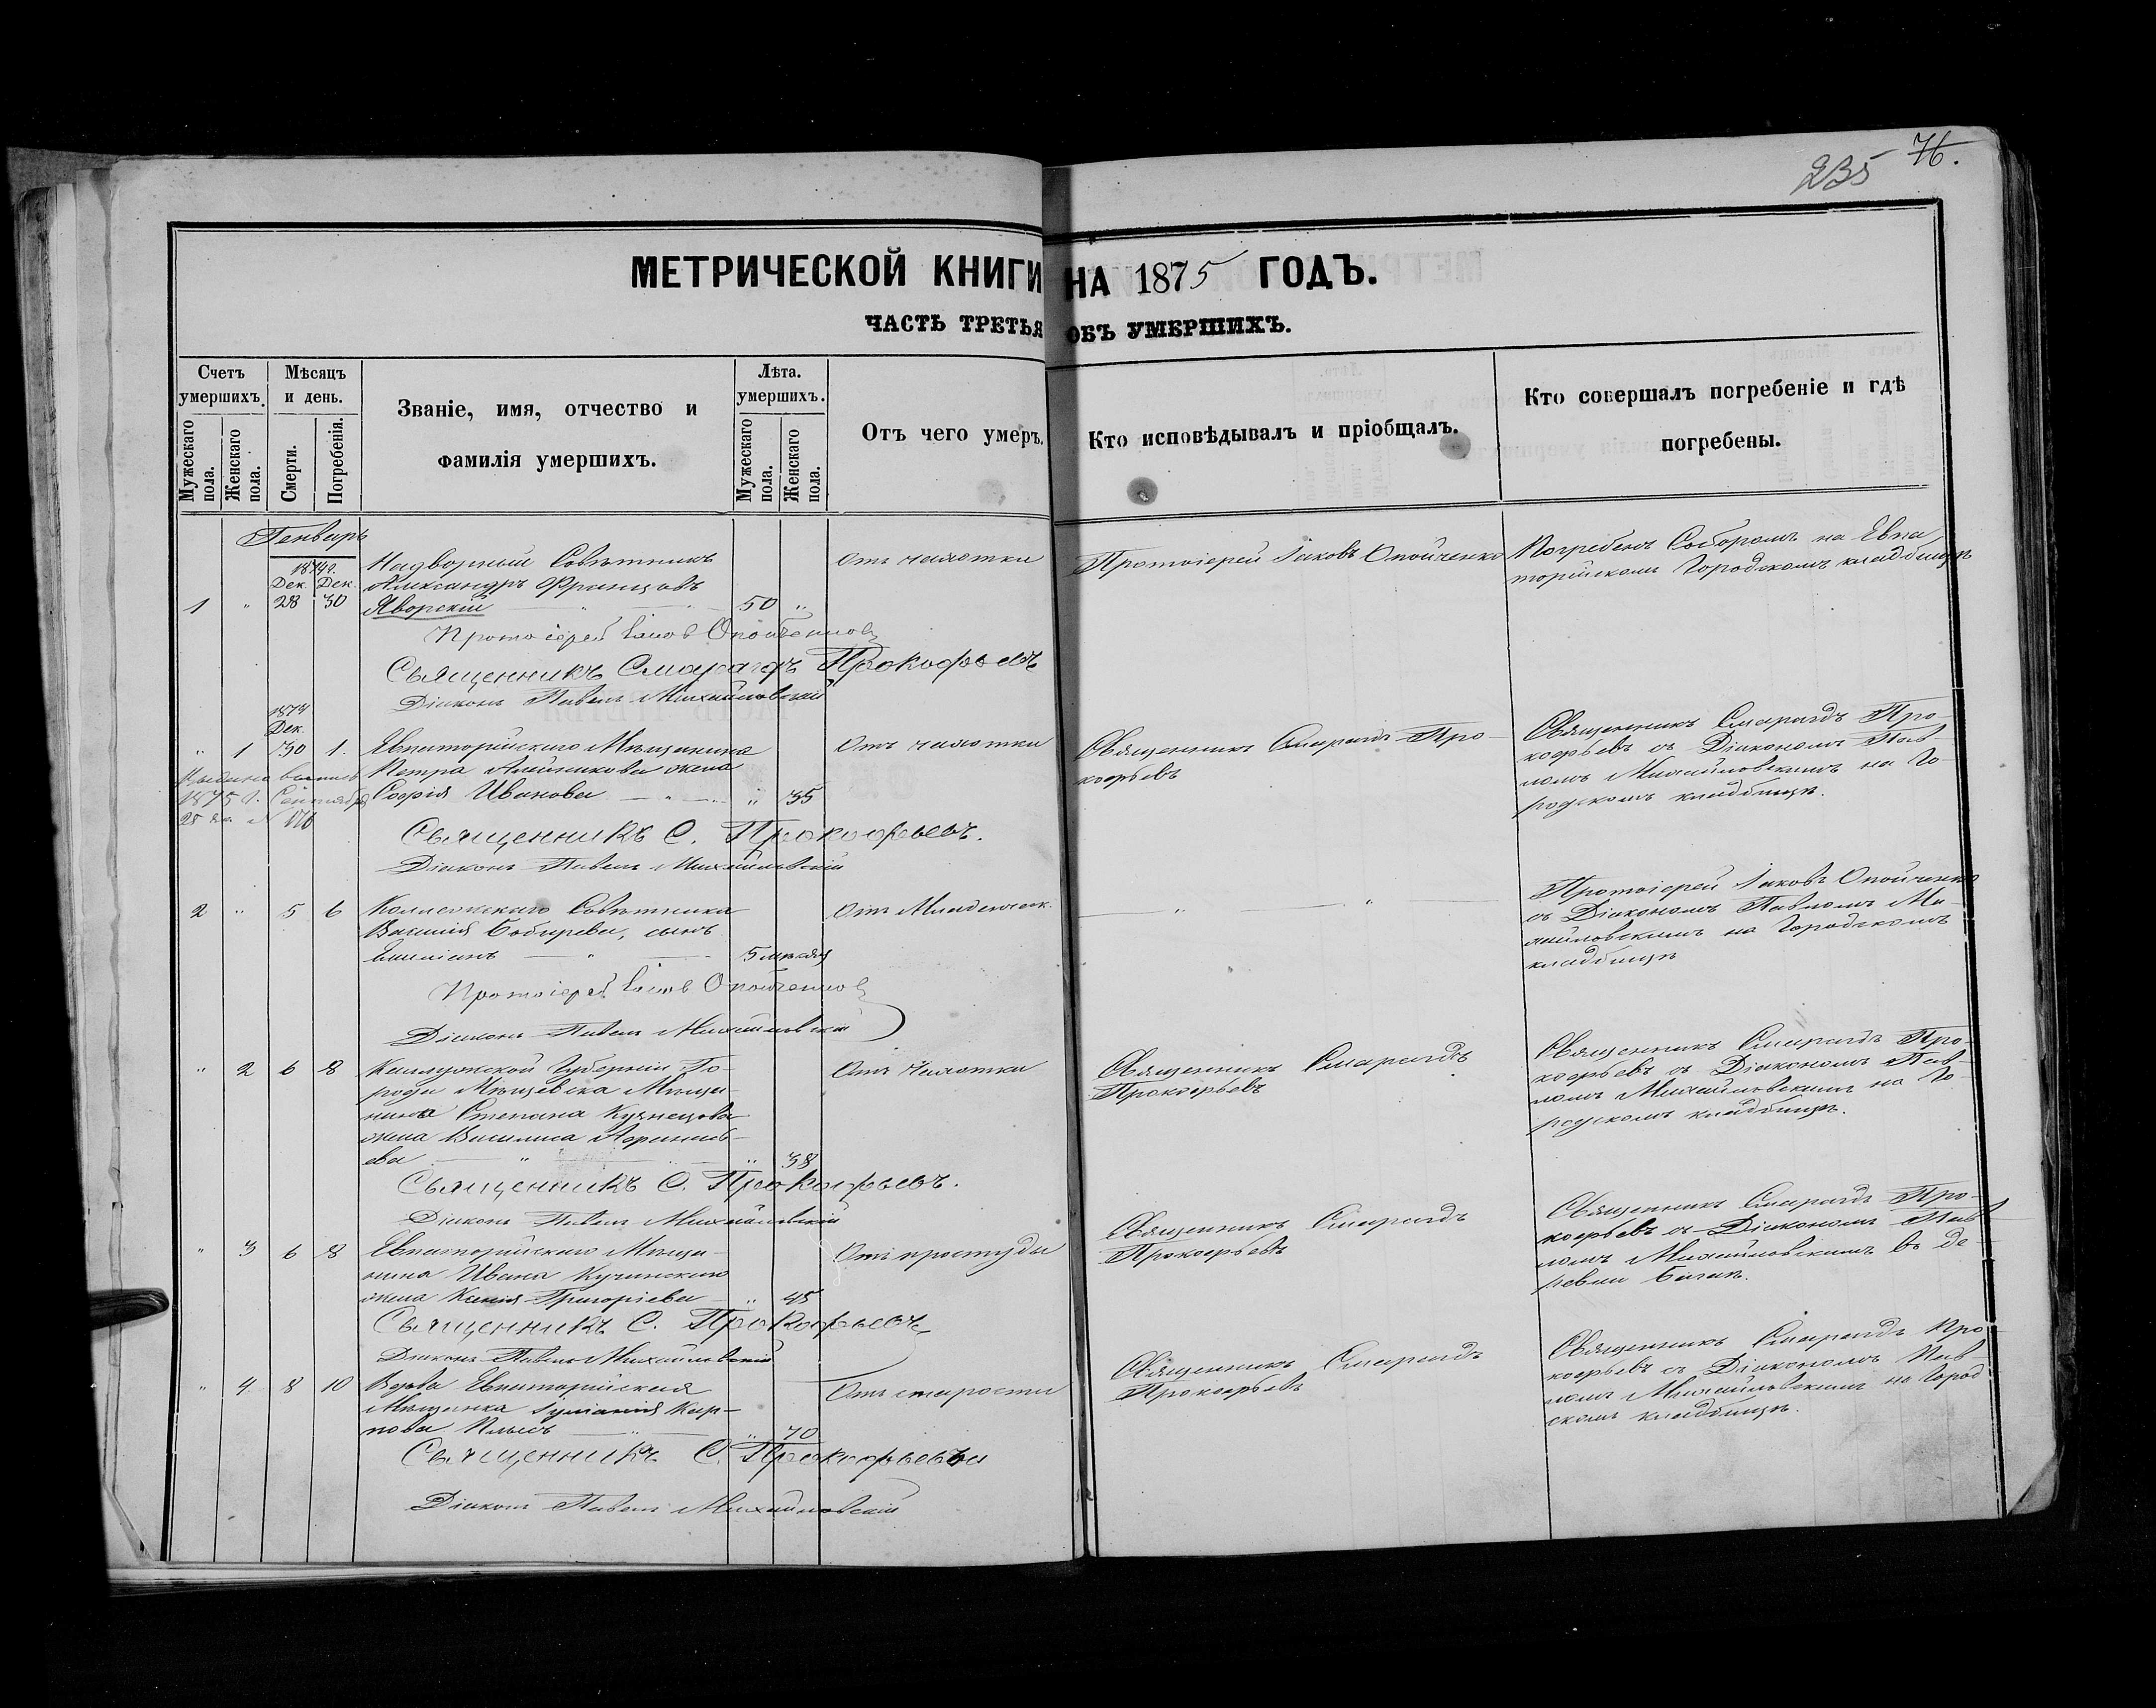 235 76.
МЕТРИЧЕСКОЙ КНИГИ НА 1875 ГОДЪ.
ЧАСТЬ ТРЕТЬЯ ОБЪ УМЕРШИХЪ.
Счетъ умершихъ.
Мужескаго пола.
Женскаго пола.
Мѣсяцъ и день.
Смерти.
Погребенія.
Званіе, имя, отчество и
фамилія умершихъ.
Лѣта. умершихъ.
Мужескаго пола.
Женскаго пола.
Отъ чего умеръ.
Кто исповѣдывалъ и пріобщалъ.
Кто совершалъ погребеніе и гдѣ
погребены.
Генварь
1874г.
Дек. Дек.
1 " 28 30
Надворный Совѣтникъ
Александръ Францовъ
Яворскій 50 "
Отъ чахотки
Протоіерей Іаковъ Опойченко
Погребенъ Соборомъ на Евпа
торійскомъ Городскомъ кладбищѣ
Протоіерей Іаковъ
Священникъ Смарагдъ Прокофьевъ
Діаконъ Павелъ Михайловскій
1874
Дек.
" 1 30 1.
Евпаторійскаго Мѣщанина
Петра Алейникова жена
Софія Иванова " 35
Отъ чахотки
Священникъ Смарагдъ Про-
кофьевъ
Священникъ Смарагдъ Про-
кофьевъ съ Діакономъ Пав-
ломъ Михайловскимъ на Го-
родскомъ кладбищѣ.
1875 г. Сентября
25 за № 176
Священникъ С. Прокофьевъ.
Діаконъ Павелъ Михайловскій
2 " 5 6
Коллежскаго Совѣтника
Василія Бобырева, сынъ
5 мѣсяц
Отъ Младенческ.
" "
Протоіерей Іаковъ Опойченко
съ Діакономъ Павломъ Ми-
хайловскимъ на Городскомъ
кладбищѣ
Протоіерей Іаковъ
Діаконъ Павелъ Михайловскій
" 2 6 8
Калужской Губерніи Го-
рода Мещевска Мѣща-
нина Степана Кузнецова
жена Василиса
ева " 38
Отъ Чахотки
Священникъ Смарагдъ
Прокофьевъ
Священникъ Смарагдъ Про-
кофьевъ съ Діакономъ Пав-
ломъ Михайловскимъ на Го-
родскомъ кладбищѣ.
Священникъ С. Прокофьевъ.
Діаконъ Павелъ Михайловскій
" 3 6 8
Евпаторійскаго Мѣща-
нина Ивана Кучинскаго
жена Ксенія Григоріева " 45
Отъ простуды
Священникъ Смарагдъ
Прокофьевъ
Священникъ Смарагдъ Про-
кофьевъ съ Діакономъ Пав-
ломъ Михайловскимъ въ де-
ревни
Священникъ С. Прокофьевъ
Діаконъ Павелъ Михайловскій
" 4 8 10
Вдова Евпаторійская
Мѣщанка Іуліанія Кар-
пова " 70
Отъ старости
Священникъ Смарагдъ
Прокофьевъ
Священникъ Смарагдъ Про
кофьевъ съ Діакономъ Пав
ломъ Михайловскимъ на Город
скомъ кладбищѣ.
Священникъ С. Прокофьевъ
Діаконъ Павелъ Михайловскій